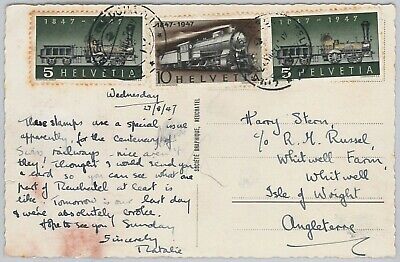 1847-1947
1847-1947
1847-1947
5 HELVETIA
10 HELVETIA
5 HELVETIA
Wednesday
27/8/47
These stamps are a special issue
apparently, for the centenary of
Swiss railways - nice aren't
they! Thought I would send you
a card so you can see what one
part of Neuchatel at least is
like. Tomorrow is our last day
& we're absolutely broke.
Hope to see you Sunday
Sincerely
Natalie
SOCIÉTÉ GRAPHIQUE, NEUCHATEL
Harry Stern,
c/o R. M. Russel,
Whitwell Farm,
Whitwell
Isle of Wright,
Angleterre